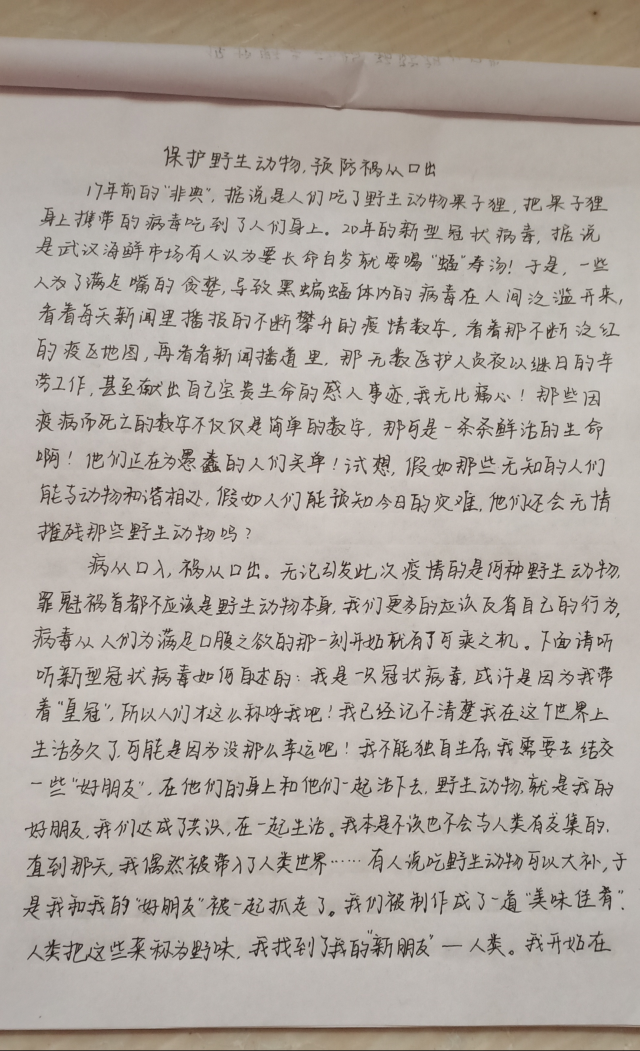 保护野生动物,预防祸从口出
17年前的“非典”,据说是人们吃了野生动物果子狸,把果子狸
身上携带的病毒吃到了人们身上。20年的新型冠状病毒,据说
是武汉海鲜市场有人认为要长命百岁就要喝“蝠”寿汤!于是,一些
人为了满足嘴的贪婪,导致黑蝙蝠体内的病毒在人间泛滥开来,
看着每天新闻里播报的不断攀升的疫情数字,看着那不断泛红
的疫区地图,再看看新闻播道里,那无数医护人员夜以继日的辛
劳工作,甚至献出自己宝贵生命的感人事迹,我无比痛心!那些因
疫病而死亡的数字不仅仅是简单的数字,那可是一条条鲜活的生命
啊!他们正在为愚蠢的人们买单!试想,假如那些无知的人们
能与动物和谐相处,假如人们能预知今日的灾难,他们还会无情
摧残那些野生动物吗?
病从口入,祸从口出。无论引发此次疫情的是何种野生动物,
罪魁祸首都不应该是野生动物本身,我们更多的应该反省自己的行为,
病毒从人们为满足口腹之欲的那一刻开始就有了可乘之机。下面请听
听新型冠状病毒如何自述的:我是一只冠状病毒,或许是因为我带
着“皇冠”,所以人们才这么称呼我吧!我已经记不清楚我在这个世界上
生活多久了,可能是因为没那么幸运吧!我不能独自生存,我需要去结交
一些“好朋友”,在他们的身上和他们一起活下去,野生动物,就是我的
好朋友,我们达成了共识,在一起生活。我本是不该也不会与人类有交集的,
直到那天,我偶然被带入了人类世界……有人说吃野生动物可以大补,于
是我和我的“好朋友”被一起抓走了。我们被制作成了一道“美味佳肴”.
人类把这些菜称为野味,我找到了我的“新朋友”—人类。我开始在